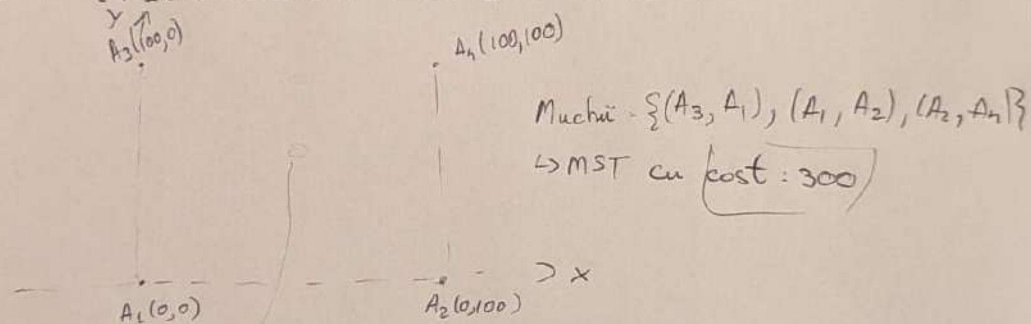 y
A₃(100,0)
A₄(100,100)
Muchii - {(A₃, A₁), (A₁, A₂), (A₂, A₄)}
↳ MST cu cost : 300
x
A₁(0,0)
A₂(0,100)